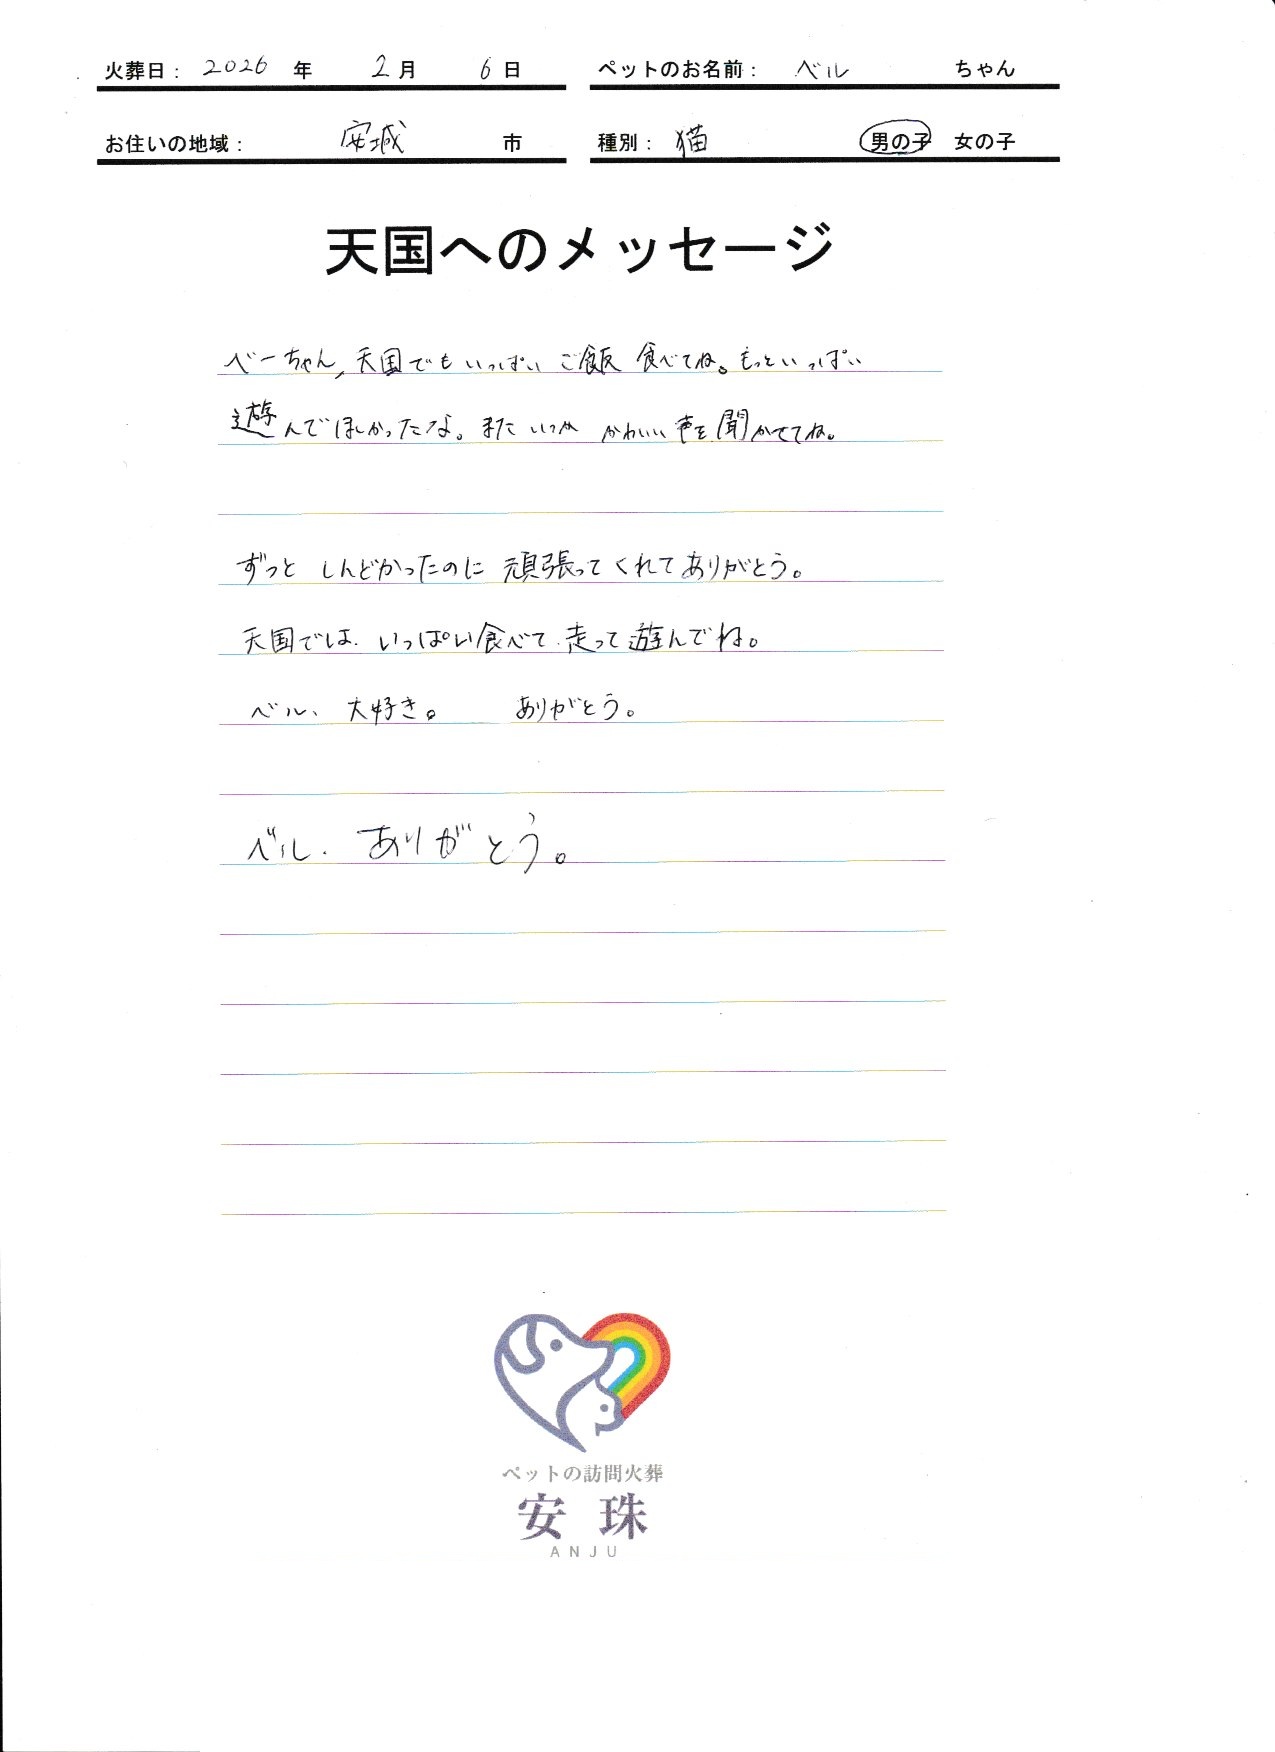 火葬日： 2026 年 2月 6日 ペットのお名前： ベル ちゃん
お住いの地域： 安城 市 種別： 猫 男の子 女の子
天国へのメッセージ
べーちゃん、天国でもいっぱいご飯食べてね。もっといっぱい
遊んでほしかったな。またいつかかわいい声を聞かせてね。
ずっと しんどかったのに 頑張ってくれてありがとう。
天国では、いっぱい食べて、走って遊んでね。
ベル、大好き。 ありがとう。
ベル、ありがとう。
ペットの訪問火葬
安珠
ANJU